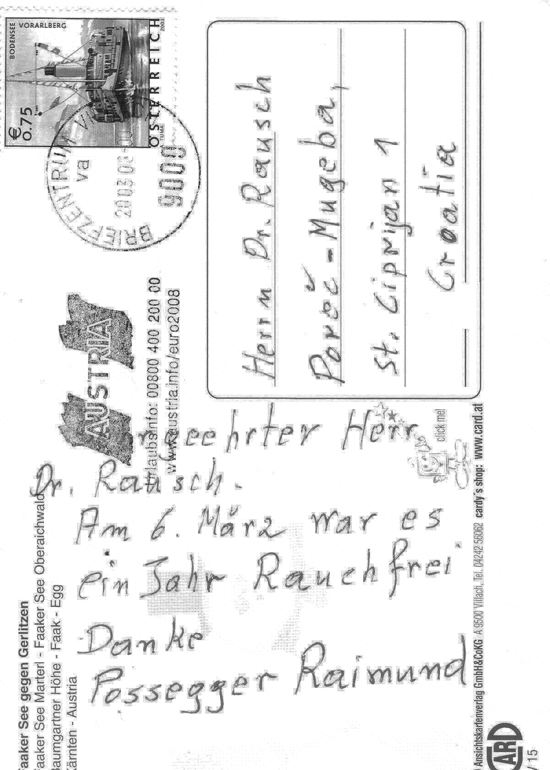 BODENSEE VORARLBERG
€ 0.75
ÖSTERREICH
BRIEFZENTRUM
va
9000
AUSTRIA
Urlaubsinfo: 00800 400 200 00
www.austria.info/euro2008
Herrn Dr. Rausch
Poreč - Mugeba,
St. Ciprijan 1
Croatia
geehrter Herr
Dr. Rausch.
Am 6. März war es
ein Jahr Rauchfrei
Danke
Possegger Raimund
Faaker See gegen Gerlitzen
Faaker See Matterl - Faaker See Oberaichwald
Baumgartner Höhe - Faak - Egg
Kärnten - Austria
click me!
Ansichtskartenverlag GmbH&CoKG A 9500 Villach, Tel. 04242 56062 cardy´s shop: www.card.at
CARD
/ 15